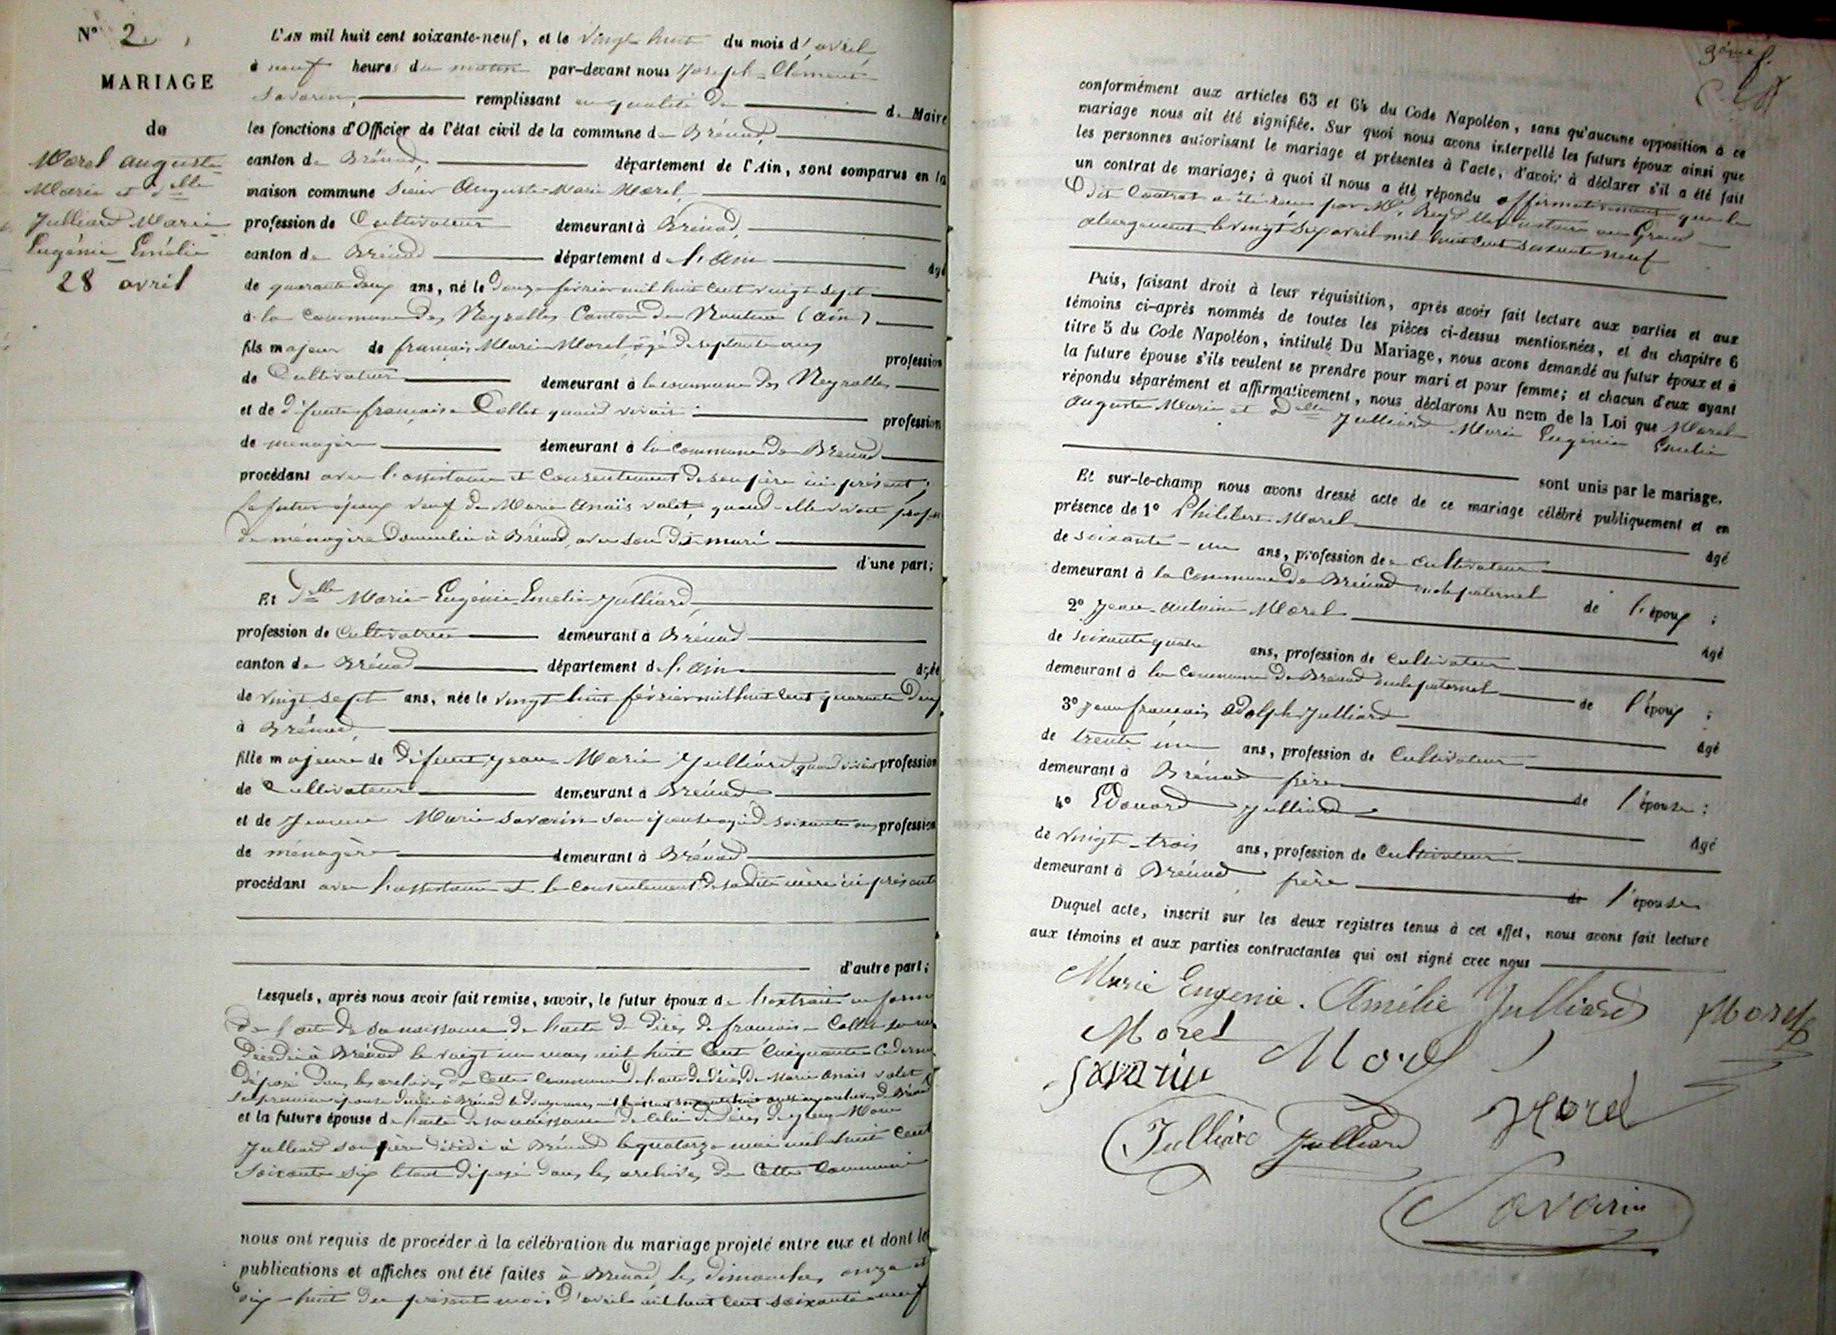 N° 2
MARIAGE
de
Morel auguste
Marie et Dlle
Julliard Marie
Eugénie Emélie
28 avril
L'AN mil huit cent soixante-neuf, et le vingt huit du mois d'avril
à neuf heures du matin par-devant nous Joseph Clément
Savarin, remplissant en qualité de d. Maire
les fonctions d'Officier de l'état civil de la commune de Brénod,
canton de Brénod département de l'Ain, sont comparus en la
maison commune Sieur Auguste Marie Morel,
profession de Cultivateur demeurant à Brénod,
canton de Brénod département de l'ain âgé
de quarante deux ans, né le douze février mil huit cent vingt sept
à la Commune des Neyrolles Canton de Nantua (ain)
fils majeur de françois Marie Morel âgé de septante ans profession
de Cultivateur demeurant à la commune des Neyrolles
et de défunte françoise Collet quand vivait profession
de ménagère demeurant à la Commune de Brénod
procédant avec l'assistance et Consentement de son père ici présent;
le futur époux veuf de Marie Anaïs valet, quand elle vivait profess
de ménagère Domiciliée à Brénod, avec son dit mari
d'une part;
Et Dlle Marie Eugénie Emelie Julliard,
profession de Cultivatrice demeurant à Brénod
canton de Brénod département de l'ain âgée
de vingt sept ans, née le vingt huit février mil huit cent quarante deux
à Brénod,
fille majeure de défunt Jean Marie Julliard, quand vivait profession
de Cultivateur demeurant à Brénod
et de Jeanne Marie Savarin son épouse âgée de soixante ans profession
de ménagère demeurant à Brénod
procédant avec l'assistance et le consentement de sadite mère ici présente
d'autre part;
Lesquels, après nous avoir fait remise, savoir, le futur époux de l'extrait en forme
de l'acte de sa naissance de l'acte de décès de françoise Collet sa mère
Décédée à Brénod le vingt un mars mil huit cent Cinquante ce dernier
déposé dans les archives de cette Commune de l'acte de décès de Marie Anaïs valet
sa première épouse décédée à Brénod
et la future épouse de l'acte de sa naissance de celui de Décès de Jean Marie
Julliard son père décédé à Brénod le quatorze mai mil huit cent
Soixante six le tout déposé dans les archives de Cette Commune
nous ont requis de procéder à la célébration du mariage projeté entre eux et dont les
publications et affiches ont été faites à Brénod, les dimanches onze et
dix-huit du présent mois d'avril mil huit cent soixante neuf
3ème f.
conformément aux articles 63 et 64 du Code Napoléon, sans qu'aucune opposition à ce
mariage nous ait été signifiée. Sur quoi nous avons interpellé les futurs époux ainsi que
les personnes autorisant le mariage et présentes à l'acte, d'avoir à déclarer s'il a été fait
un contrat de mariage; à quoi il nous a été répondu affirmativement que le
dit Contrat a été reçu par Me Reydellet notaire au Grand
abergement le vingt six avril mil huit cent soixante neuf
Puis, faisant droit à leur réquisition, après avoir fait lecture aux parties et aux
témoins ci-après nommés de toutes les pièces ci-dessus mentionnées, et du chapitre 6
titre 5 du Code Napoléon, intitulé Du Mariage, nous avons demandé au futur époux et à
la future épouse s'ils veulent se prendre pour mari et pour femme; et chacun d'eux ayant
répondu séparément et affirmativement, nous déclarons Au nom de la Loi que Morel
Auguste Marie et Dlle Julliard Marie Eugénie Emelie
sont unis par le mariage.
Et sur-le-champ nous avons dressé acte de ce mariage célébré publiquement et en
présence de 1° Philibert Morel âgé
de soixante-un ans, profession de Cultivateur
demeurant à la Commune de Brénod oncle paternel de l'époux;
2° Jean Antoine Morel âgé
de soixante quatre ans, profession de Cultivateur
demeurant à la Commune de Brénod oncle paternel de l'époux;
3° Jean françois Adolphe Julliard âgé
de trente un ans, profession de Cultivateur
demeurant à Brénod frère de l'épouse;
4° Edouard Julliard âgé
de vingt-trois ans, profession de Cultivateur
demeurant à Brénod frère de l'épouse
Duquel acte, inscrit sur les deux registres tenus à cet effet, nous avons fait lecture
aux témoins et aux parties contractantes qui ont signé avec nous
Marie Eugénie. Amélie Julliard Morel
Morel
Savarin Morel
Julliard Julliard Morel
Savarin